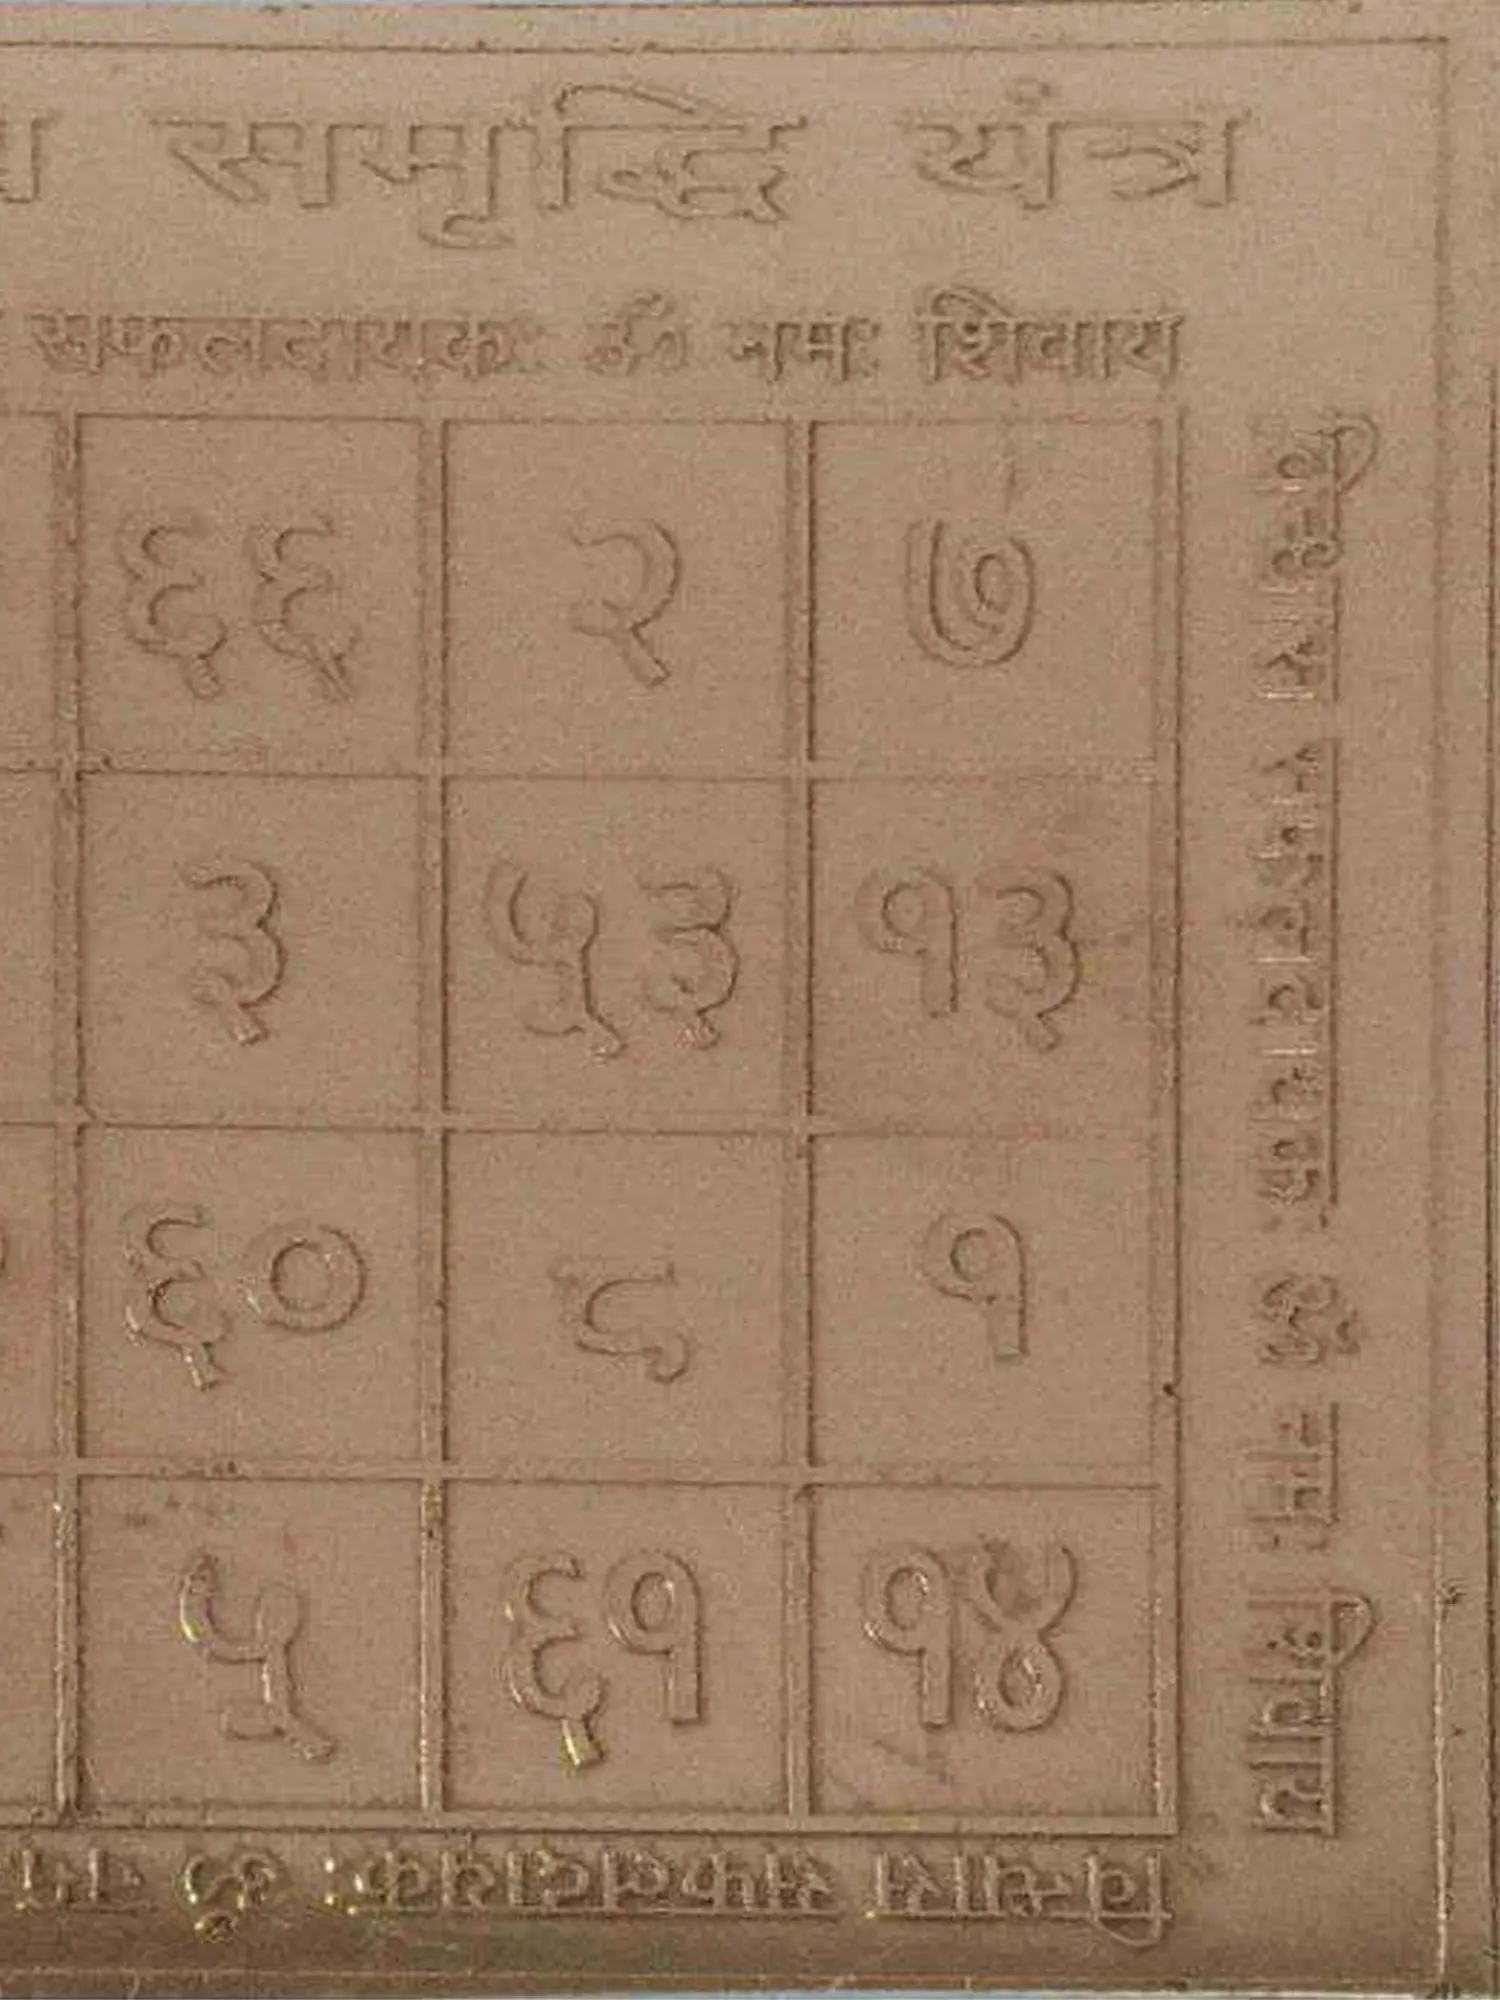 समृद्धि यंत्र
सफलदायकः ॐ नमः शिवाय
६६ २ ७
३ ५३ १३
६० ८ १
५ ६१ १४
विन्यास सफलदायकः ॐ नमः शिवाय
विन्यास सफलदायकः ॐ नमः